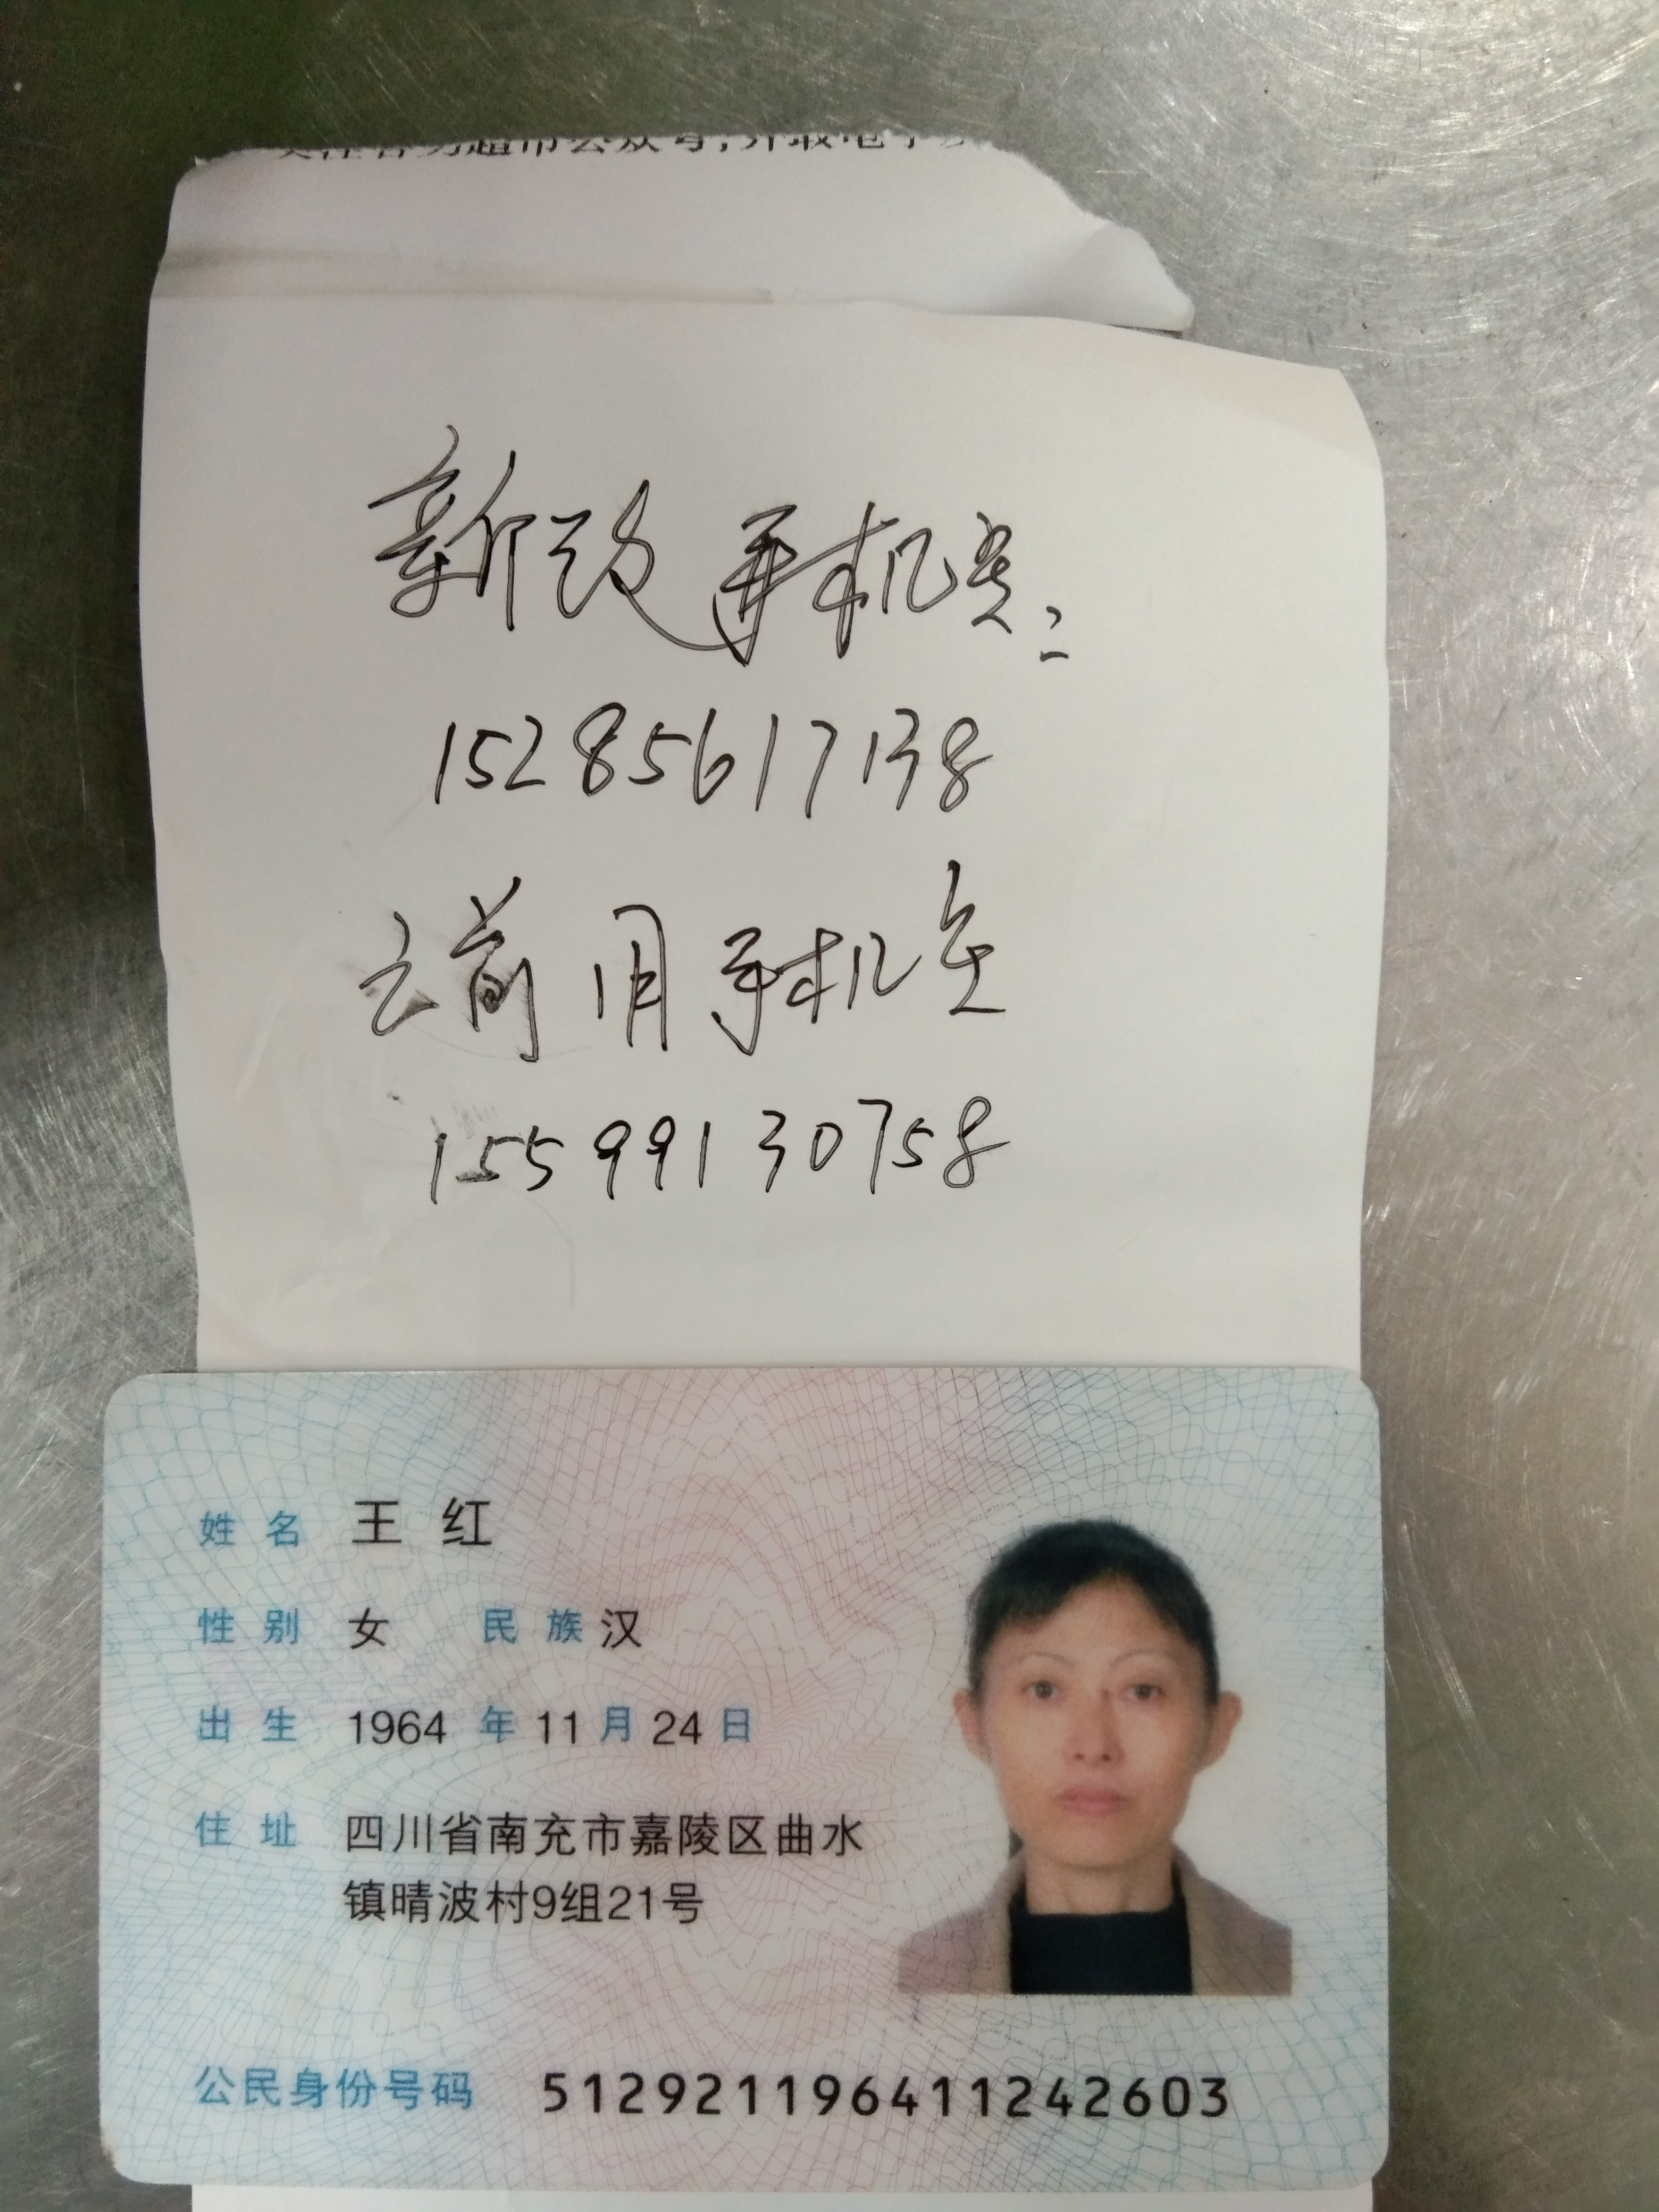 超市公众号,
新改手机号:
15285617138
之前用手机号
15599130758
姓名 王红
性别 女 民族 汉
出生 1964 年 11 月 24 日
住址 四川省南充市嘉陵区曲水
镇晴波村9组21号
公民身份号码 512921196411242603